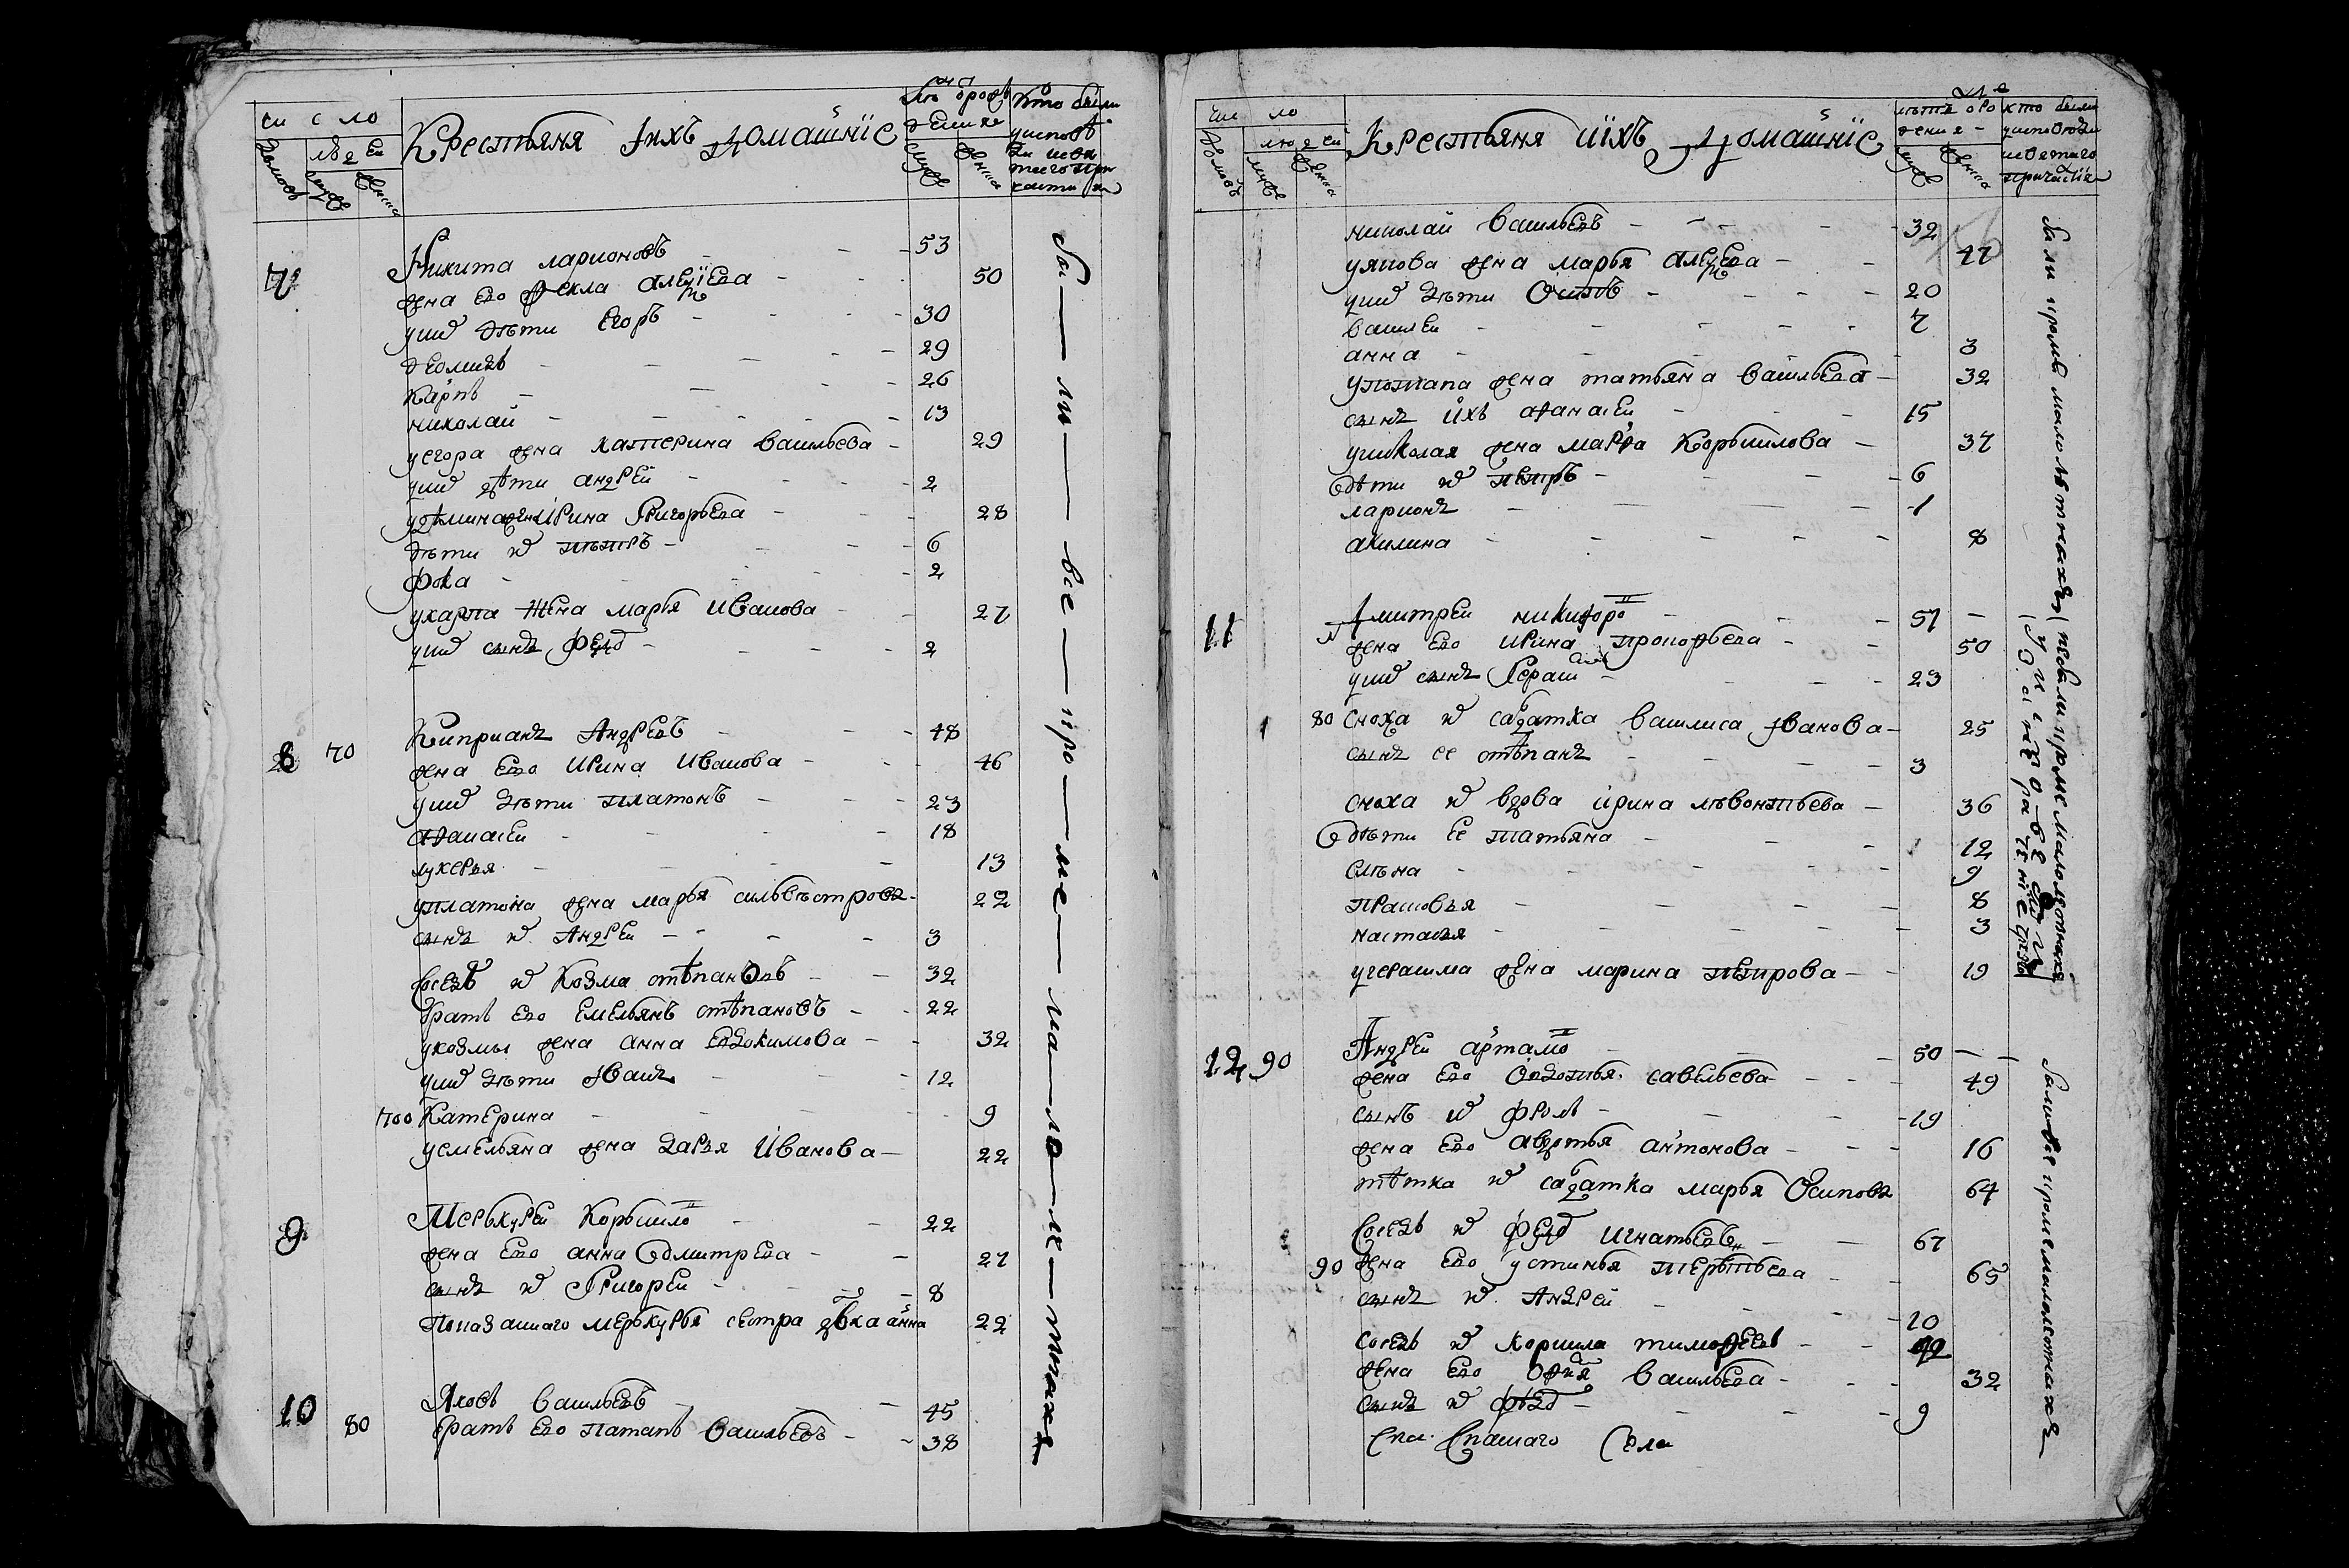 чи с ло
людеи
домовъ
мужес
женска
Крестьяня Iихъ домашнїе
лѣ ѿрож
дения
мужес
женска
кто были
уисповѣ
ди исвя
таго при
частия
7
Никита ларионовъ - - 53
жена Ево Фекла алеѯѣева - - 50
унихъ дѣти Егоръ - - 30
демидъ - - 29
Карпъ - - 26
николай - - 13
уегора жена катерина васильева - 29
унихъ дѣти андреи - - 2
удемида жена ирина григорьева - - 28
дѣти их петръ - - 6
фока - - 2
укарпа жена марья иванова - - 27
унихъ сынъ федо - - 2
8 70
Киприанъ Андреевъ - - 48
жена Ево ирина иванова - - 46
унихъ дѣти платонъ - - 23
афанасеи - - 18
лукерья - - 13
уплатона жена марья сильвѣстрова - 22
сынъ их Андреи - - 3
Сосед их Козма стѣпановъ - - 32
братъ Ево Емельянъ стѣпановъ - - 22
укозмы жена анна Евдокимова - - 32
унихъ дѣти Иванъ - - 12
700 Катерина - - 9
уемельяна жена дарья Иванова - 22
9
Меркуреи Корнило - - 22
жена Ево анна дмитрева - - 27
сынъ их Григореи - - 8
Показаннаго меркурья сестра дѣвка анна 22
10 80
Яковъ васильевъ - - 45
братъ Ево Патапъ васильевъ - - 38
бы — ли — все — кро — ме — ма — ло — ле — тныхъ
чис ло
людеи
домовъ
мужес
женска
Крестьяня иихъ домашнїе
лѣтъ ѿро
жения -
мужес
женска
кто были
уисповѣди
исвятаго
причастїя
николаи васильевъ - - 32
уякова жена марья алеѯѣева - - 47
унихъ дѣти Осипъ - - 20
василеи - - 7
анна - - 3
употапа жена татьяна васильева - 32
сынъ ихъ афанасеи - - 15
униколая жена марфа Корнилова - 37
дѣти их петръ - - 6
ларионъ - - 1
акилина - - 8
11
Дмитреи никифоро - - 51 -
жена Ево ирина прокофьева - - 50
унихъ сынъ герасимъ - - 23
80 сноха их салдатка василиса Iванова - 25
сынъ ее стѣпанъ - - 3
сноха их вдова ирина лѣвонтьева - 36
дѣти ее татьяна - - 12
Елѣна - - 9
прасковья - - 8
настасья - - 3
угерасима жена марина петрова - - 19
12 90
Андреи артамо - - 50
жена Ево Овдотья савельева - - 49
сынъ их фролъ - - 19
жена Ево авдотья антонова - - 16
тѣтка их салдатка марья Осипова 64
Соседъ их федо игнатьевъ - - 67
90 жена Ево устинья терентьева - - 65
сынъ их Андреи - - 20
соседъ их корнила тимофеевъ - -
жена Ево Офи васильева - - 32
сынъ их Фѣдо - - 9
Спаскаго Села
были кроме малолѣтныхъ
небыли кроме малолѣтныхъ
были все кроме малолѣтныхъ